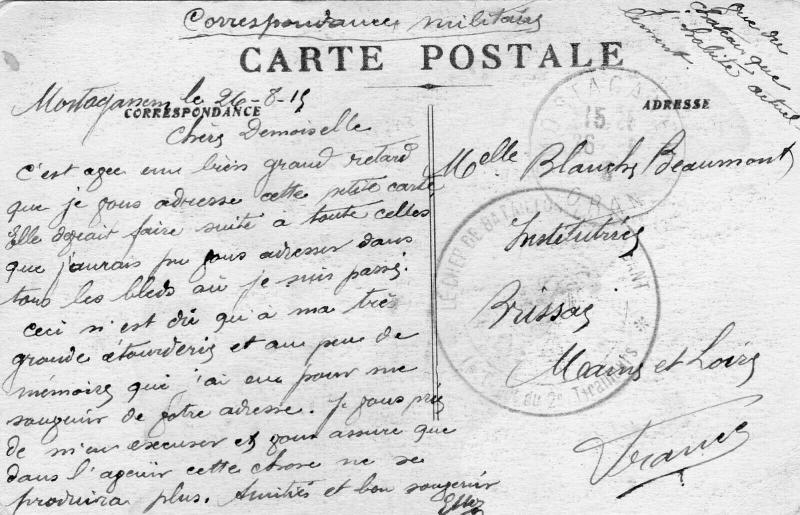 Correspondances militaires
que du
chateau que
j'habite actuel
lement.
CARTE POSTALE
CORRESPONDANCE
ADRESSE
Mostaganem le 26-8-15
Chère Demoiselle
C'est avec un bien grand retard
que je vous adresse cette petite carte
Elle devait faire suite à toute celles
que j'aurais pu vous adresser dans
tous les bleds où je suis passé.
Ceci n'est dû qu'à ma très
grande étourderie et au peu de
mémoire que j'ai eue pour me
souvenir de votre adresse. Je vous prie
de m'en excuser et vous assure que
dans l'avenir cette chose ne se
produira plus. Amitiés et bon souvenir
Melle Blanche Beaumont
Institutrice
Brissac
Maine et Loire
France
MOSTAGANEM
15
26
ORAN
LE CHEF DE BATAILLON
du 2e Tirailleurs